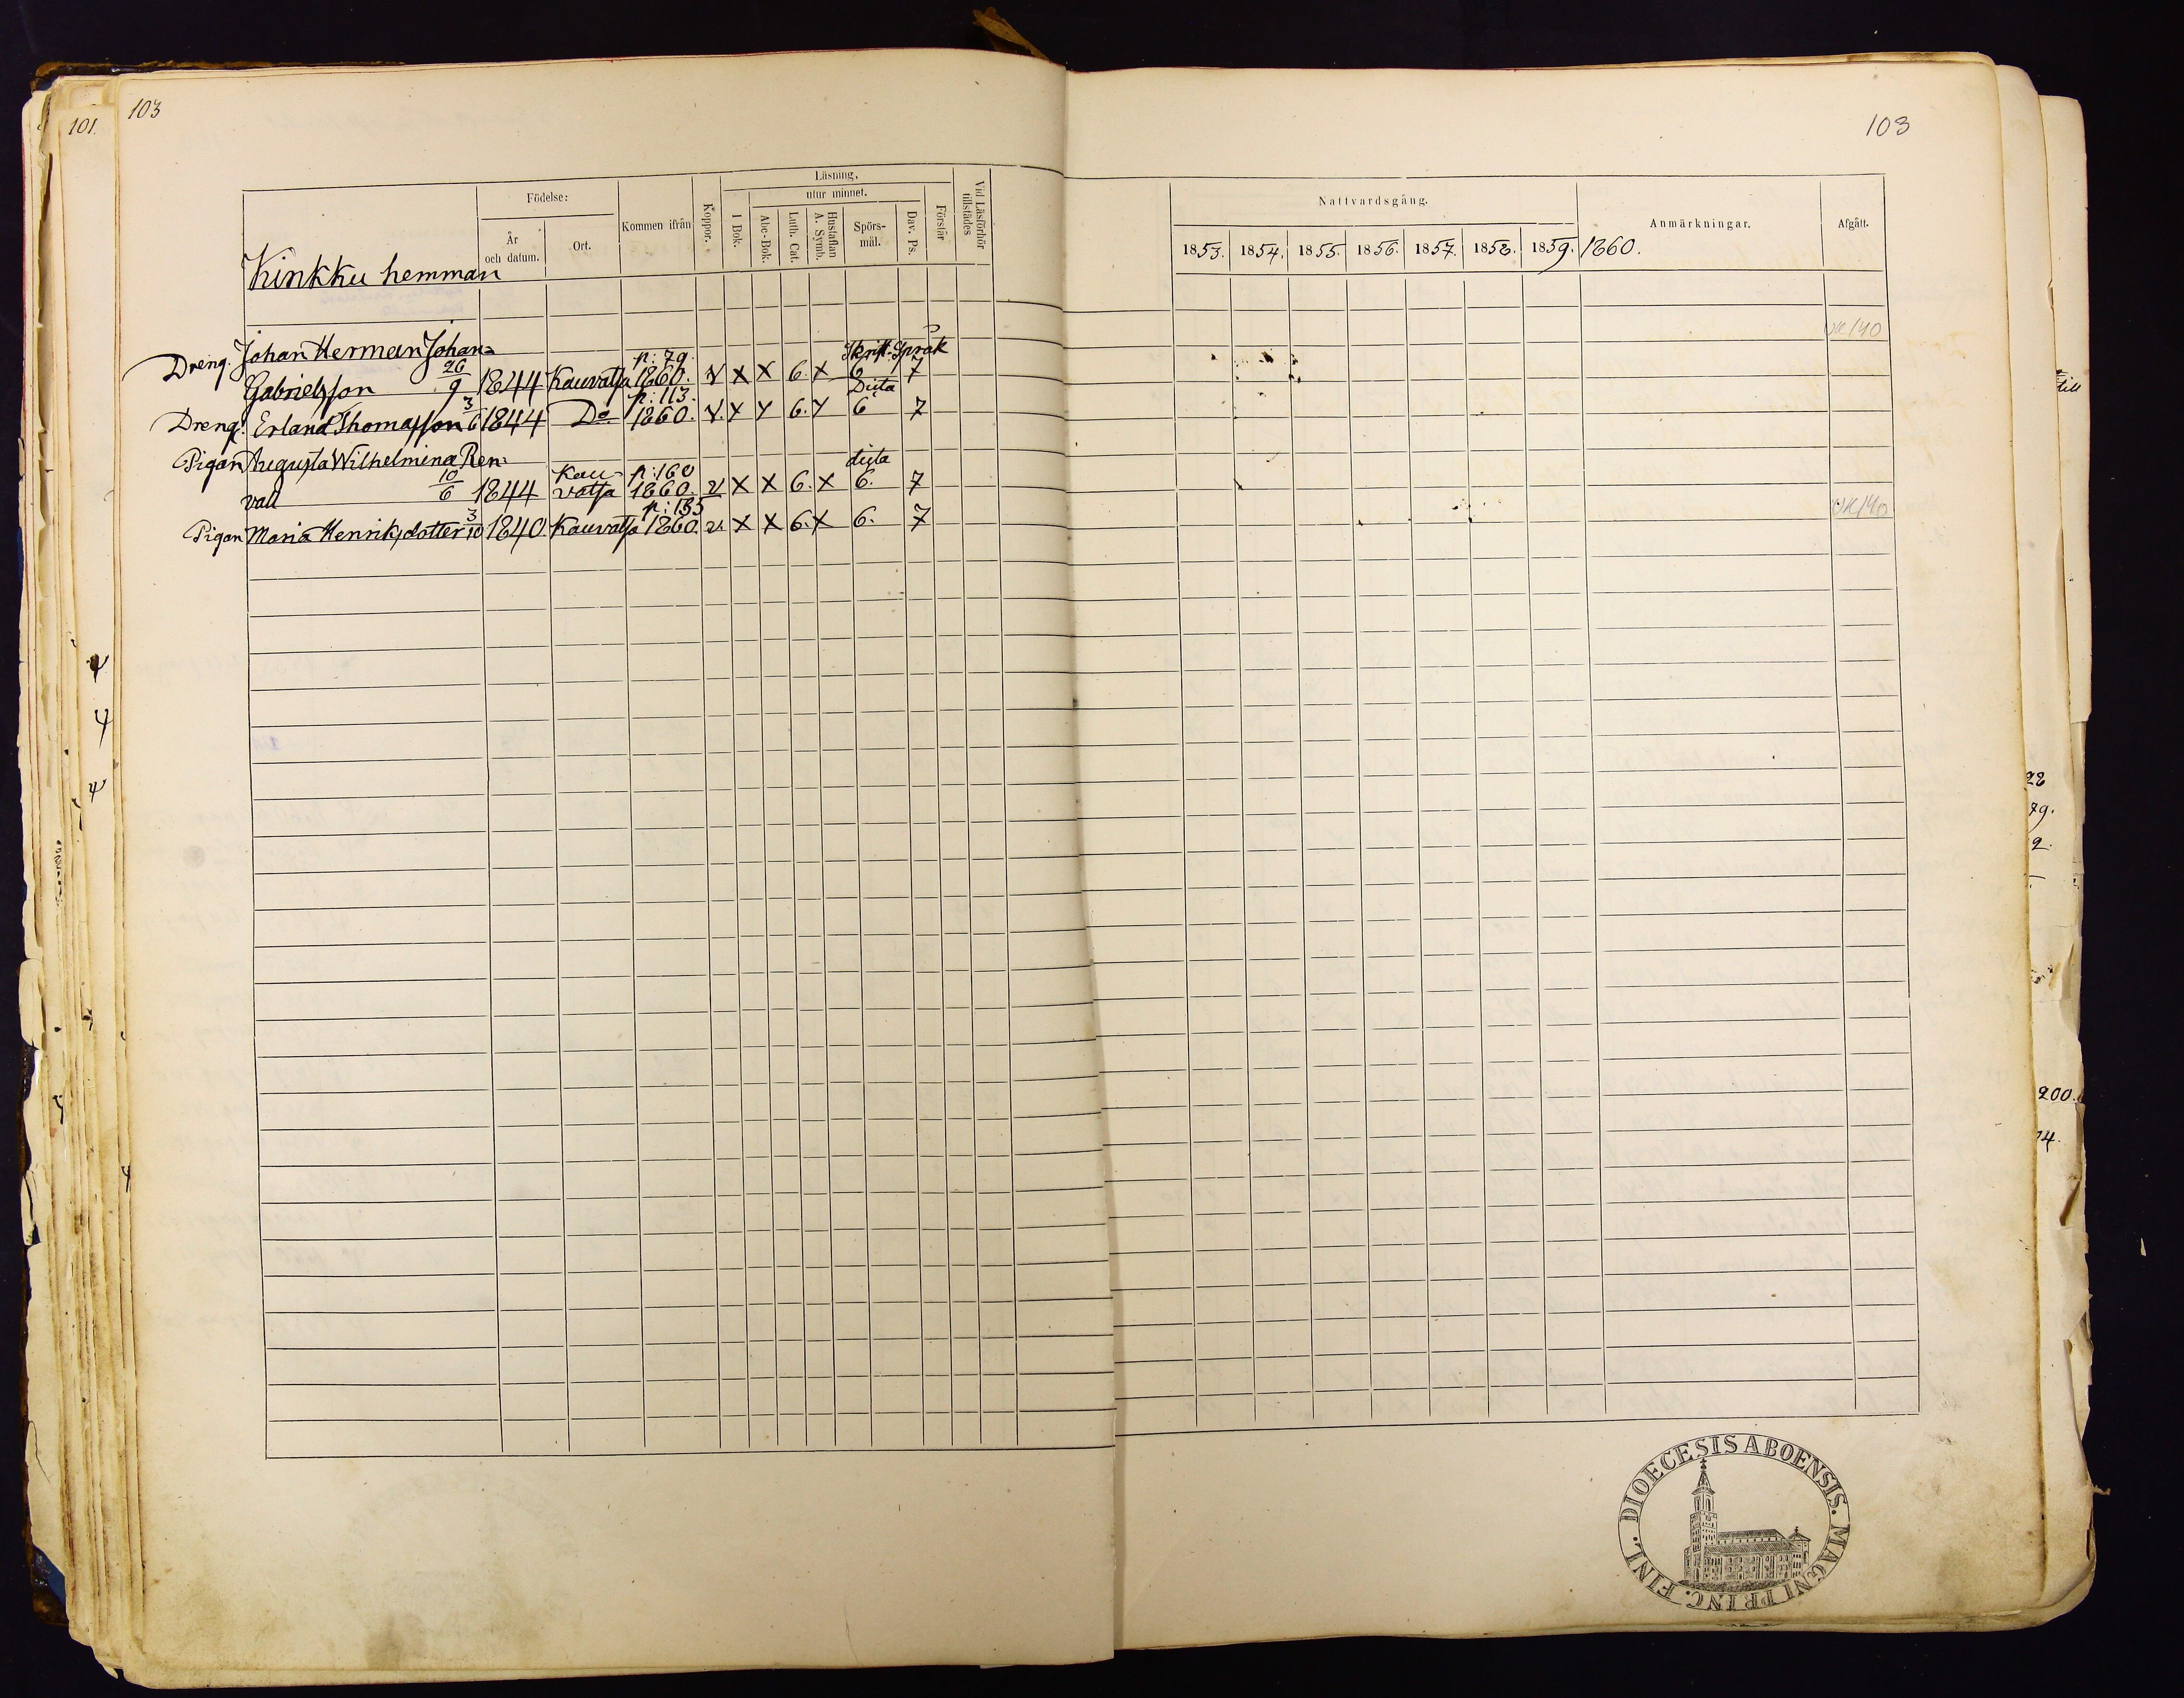 101.
103
103
Födelse:
År
och datum.
Ort.
Kommen ifrån
Koppor.
Läsning,
utur minnet.
I Bok.
Abc-Bok.
Luth. Cat.
Hustaflan
A. Symb.
Spörs-
mål.
Dav. Ps.
Förstår
Vid Läsförhör
tillstädes
Nattvardsgång.
1853. 1854. 1855. 1856. 1857. 1858. 1859. 1860.
Anmärkningar.
Afgått.
Kinkku hemman
Dreng. Johan Herman Johan= p: 79. Skrift. Språk
Gabrielsson 26/9 1844 Kauvatsa 1860. v x x 6. x 6 7
p: 113. Dicta
Dreng. Erland Thomasson 3/6 1844 Do 1860. v. x x 6. x 6 7
Pigan Augusta Wilhelmina Ren= Kau= p: 160 dicta
vall 10/6 1844 vatsa 1860. v x x 6. x 6. 7
p: 135
Pigan Maria Henriksdotter 3/10 1840. Kauvatsa 1860. v x x 6. x 6. 7
till
22
79.
2.
200.
14.
DIOECESIS ABOENSIS. MAGNI PRINC. FINL.